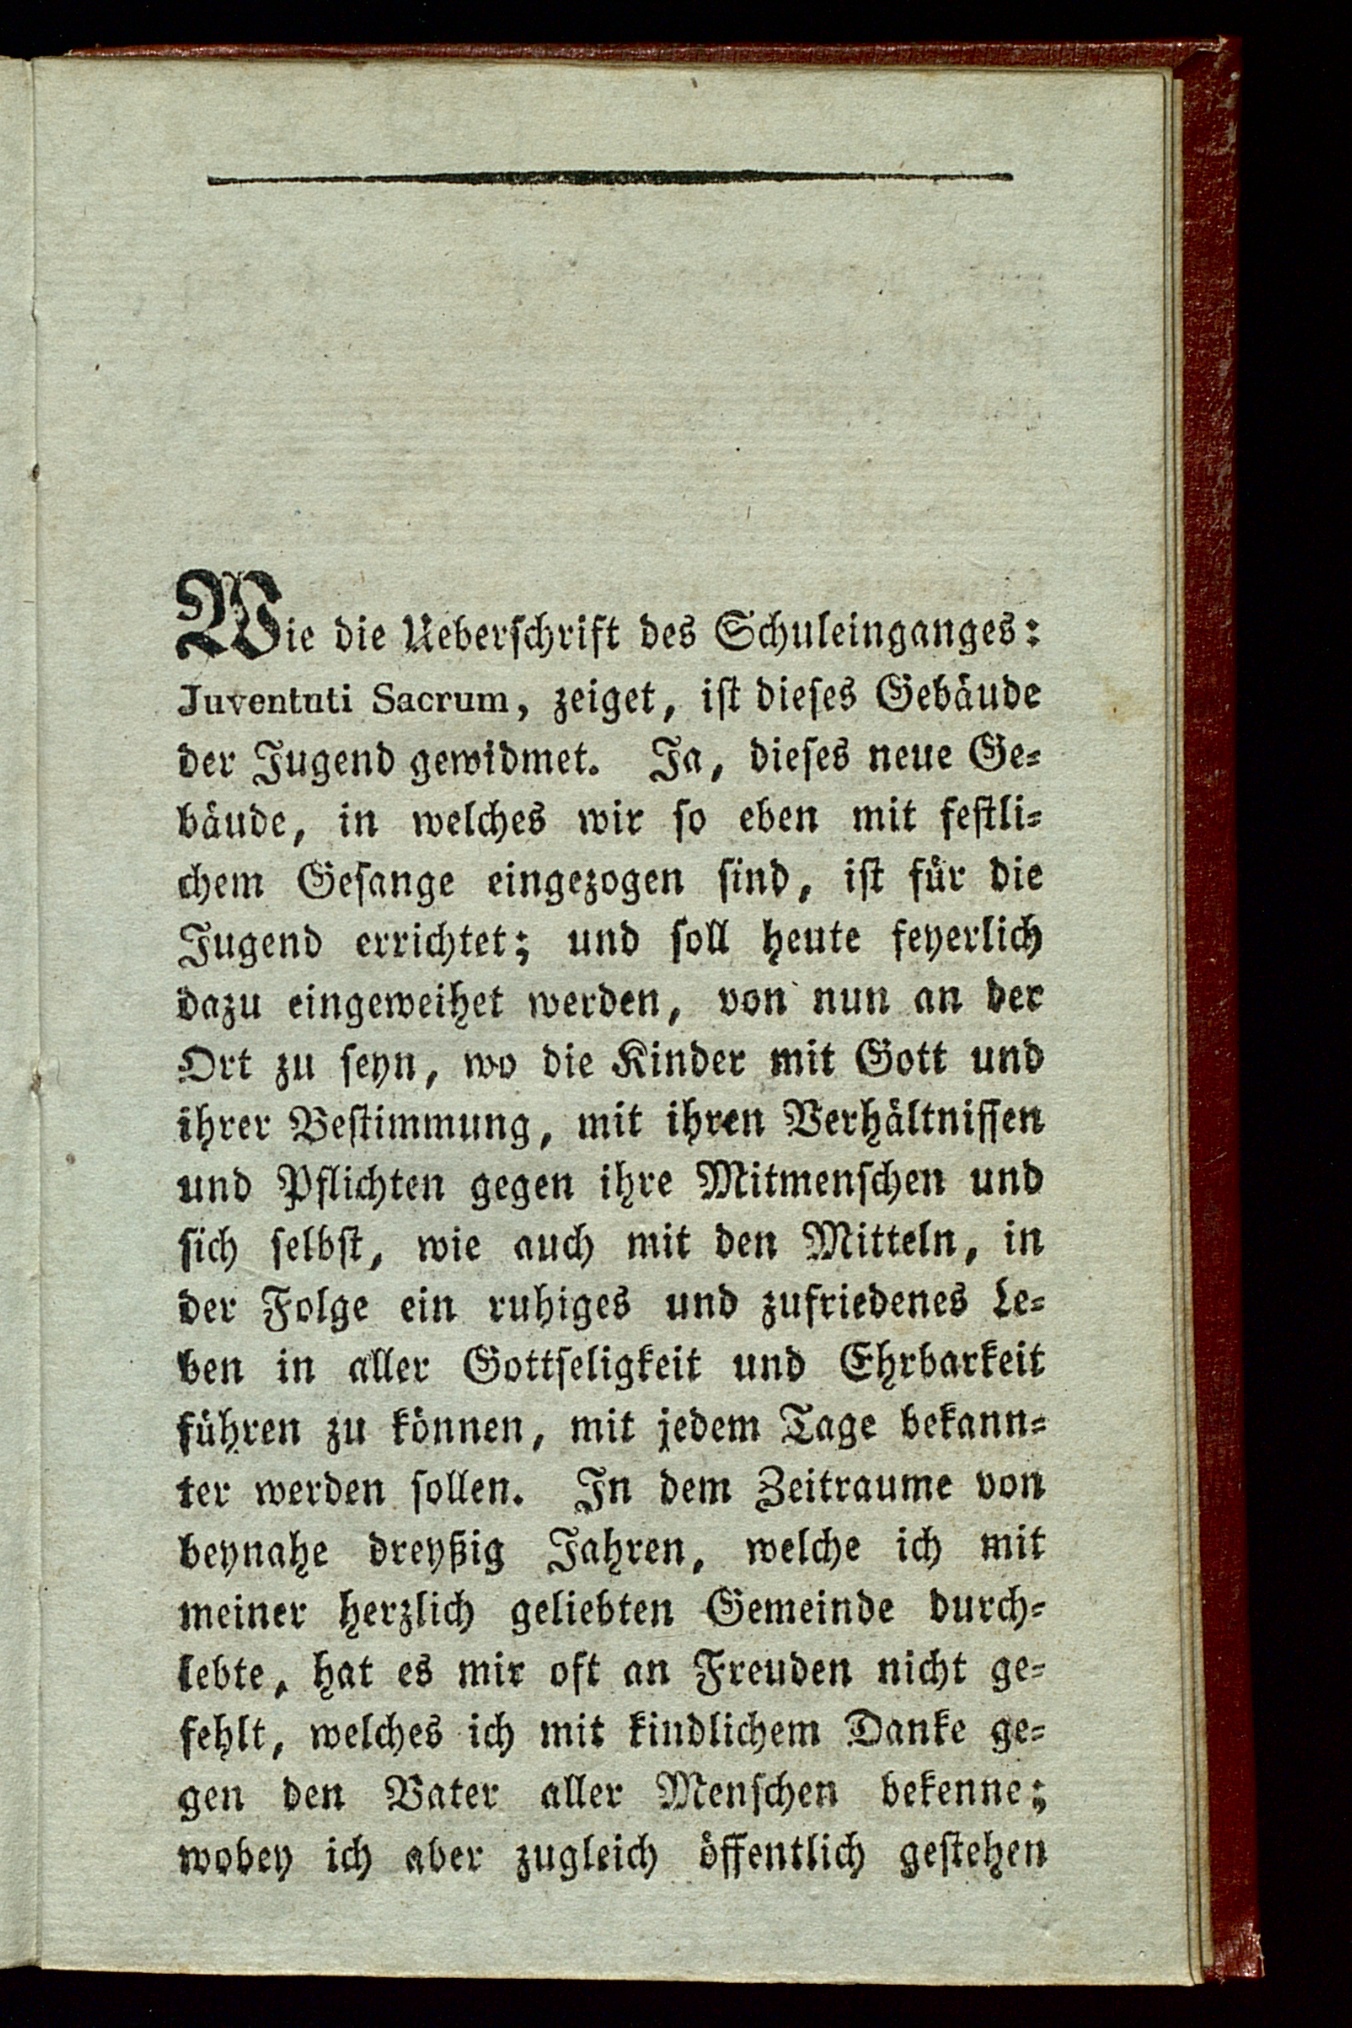 Wie die Ueberschrift des Schuleinganges:
Juventuti Sacrum, zeiget, ist dieses Gebäude
der Jugend gewidmet. Ja, dieses neue Ge-
bäude, in welches wir so eben mit festli-
chem Gesange eingezogen sind, ist für die
Jugend errichtet; und soll heute feyerlich
dazu eingeweihet werden, von nun an der
Ort zu seyn, wo die Kinder mit Gott und
ihrer Bestimmung, mit ihren Verhältnissen
und Pflichten gegen ihre Mitmenschen und
sich selbst, wie auch mit den Mitteln, in
der Folge ein ruhiges und zufriedenes Le-
ben in aller Gottseligkeit und Ehrbarkeit
führen zu können, mit jedem Tage bekann-
ter werden sollen. In dem Zeitraume von
beynahe dreyßig Jahren, welche ich mit
meiner herzlich geliebten Gemeinde durch-
lebte, hat es mir oft an Freuden nicht ge-
fehlt, welches ich mit kindlichem Danke ge-
gen den Vater aller Menschen bekenne;
wobey ich aber zugleich öffentlich gestehen